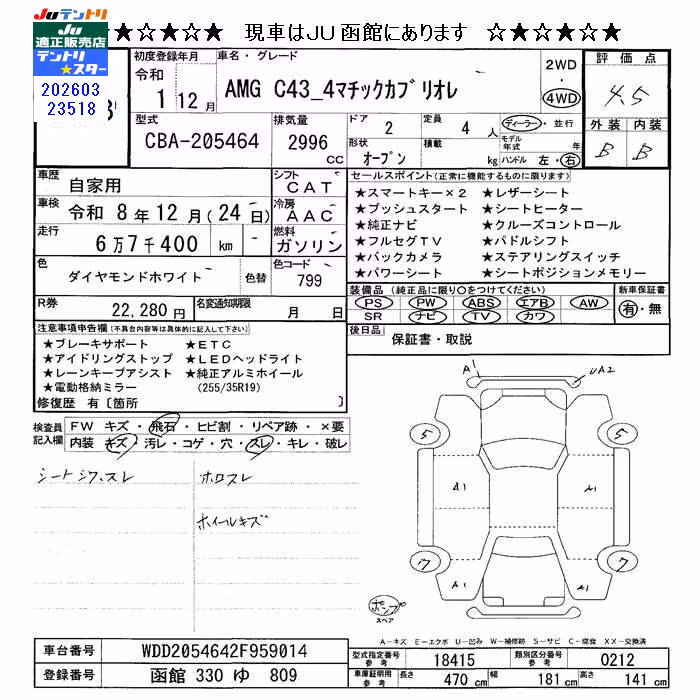 JUテントリ
JU
適正販売店
テントリ
★スター
★☆★☆★ 現車はJU函館にあります ☆★☆★☆★
202603
23518
初度登録年月
令和
1 12月
車名・グレード
AMG C43_4マチックカブリオレ
2WD
・
4WD
評価点
4.5
外装 内装
B B
型式
CBA-205464
排気量
2996
CC
ドア
2
定員
4 人
形状
オープン
積載
kg
ディーラー・並行
モデル年式 年
ハンドル 左・右
車歴
自家用
シフト
CAT
車検
令和 8年12月(24日)
冷房
AAC
走行
6万7千400 km
燃料
ガソリン
色
ダイヤモンドホワイト
色替
色コード
799
R券
22,280円
名変通知期限
月 日
セールスポイント(正常に機能するものに限ります)
★スマートキー×2 ★レザーシート
★プッシュスタート ★シートヒーター
★純正ナビ ★クルーズコントロール
★フルセグTV ★パドルシフト
★バックカメラ ★ステアリングスイッチ
★パワーシート ★シートポジションメモリー
装備品(純正品に限り○をつけてください)
PS PW ABS エアB AW
SR ナビ TV カワ
新車保証書
有・無
後日品
保証書・取説
注意事項申告欄(不具合内容等は具体的に記入して下さい)
★ブレーキサポート ★ETC
★アイドリングストップ ★LEDヘッドライト
★レーンキープアシスト ★純正アルミホイール
★電動格納ミラー (255/35R19)
修復歴 有〔箇所 〕
検査員
記入欄
FW キズ・飛石・ヒビ割・リペア跡・×要
内装 キズ・汚レ・コゲ・穴・スレ・キレ・破レ
シートシワ、スレ
ホロスレ
ホイールキズ
A1
UA2
5
5
A1
A1
7
7
A1
A1
ポンプ
スペア
A−キズ E−エクボ U−凹み W−補修跡 S−サビ C−腐食 XX−交換済
車台番号
WDD2054642F959014
登録番号
函館 330 ゆ 809
型式指定番号
参考
18415
類別区分番号
参考
0212
車庫証明用
参考
長さ
470 cm
幅
181 cm
高さ
141 cm